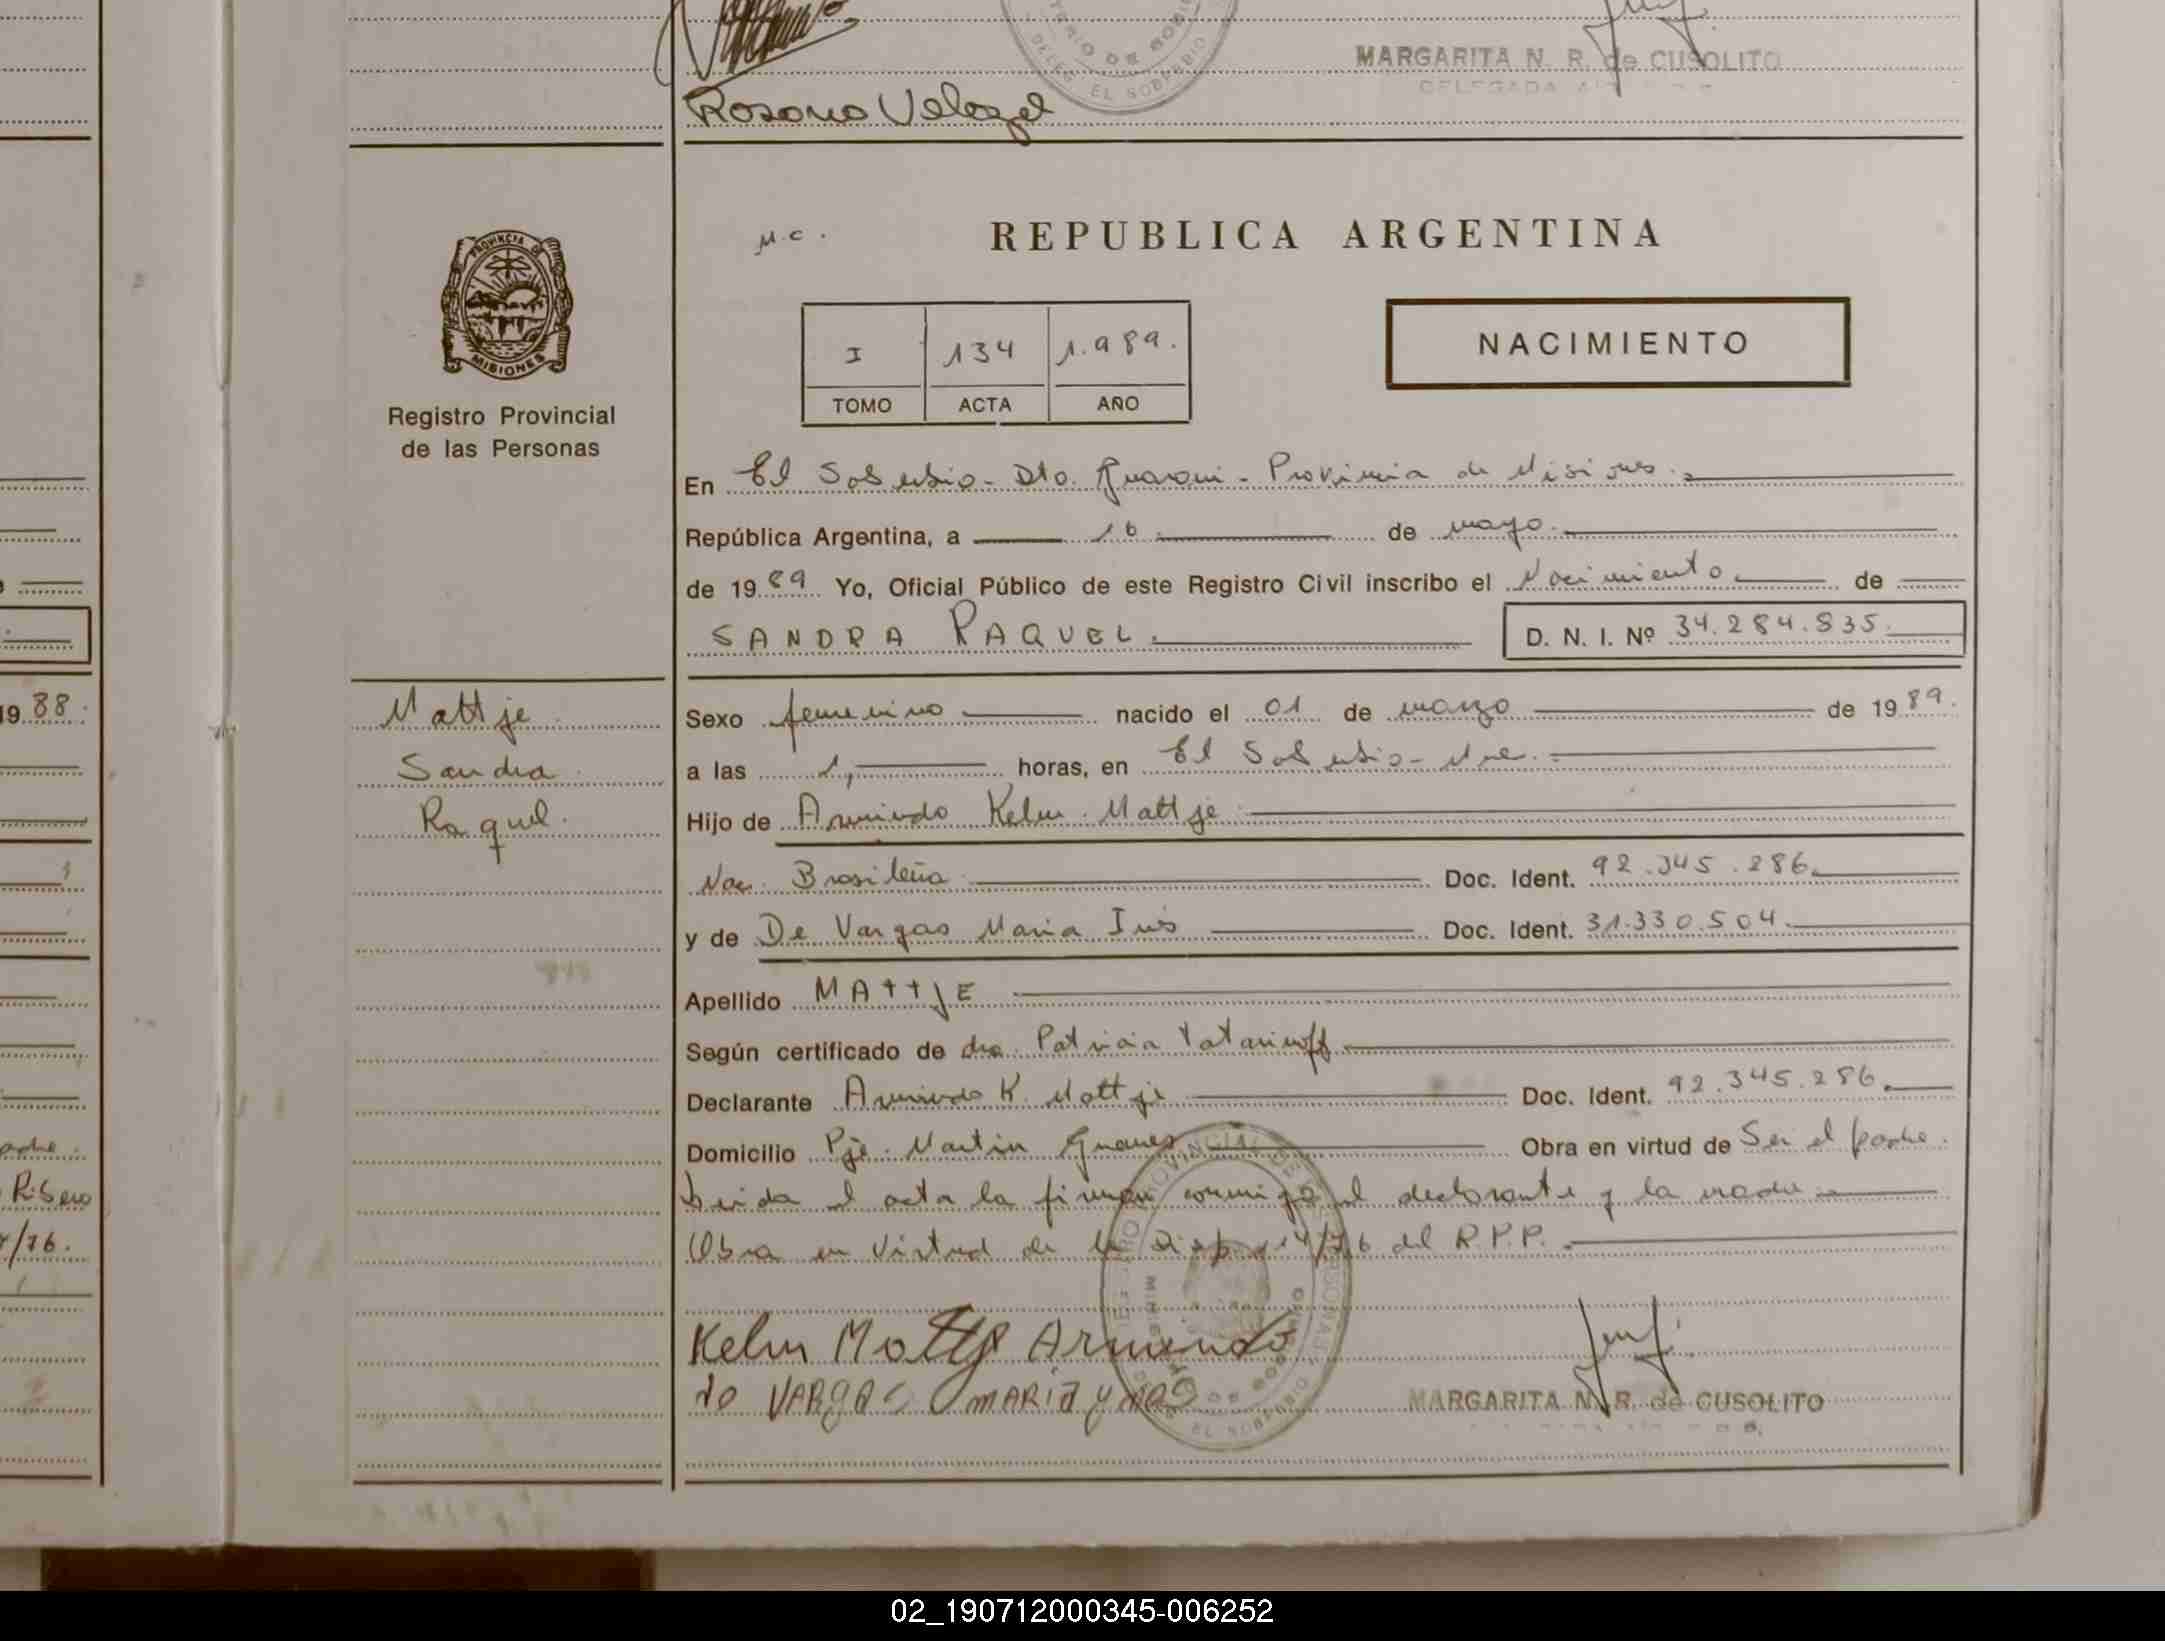 MARGARITA N. R. de CUSOLITO
DELEGADA
EL SOBERBIO
Rosana Velazquez
19 88.
Ribero
/76.
PROVINCIA DE
MISIONES
Registro Provincial
de las Personas
M.C.
REPUBLICA ARGENTINA
I 134 1.989.
TOMO ACTA AÑO
NACIMIENTO
En El Soberbio - Dto. Guarani - Provincia de Misiones.
República Argentina, a 16 de mayo.
de 19 89 Yo, Oficial Público de este Registro Civil inscribo el Nacimiento de
SANDRA RAQUEL. D. N. I. Nº 34.284.835.
Mattje
Sandra
Raquel.
Sexo femenino nacido el 01 de marzo de 19 89.
a las 1, horas, en El Soberbio - Mnes.
Hijo de Armindo Kelm Mattje
Nac. Brasileña Doc. Ident. 92.345.286.
y de De Vargas Maria Inés Doc. Ident. 31.330.504.
Apellido MATTJE
Según certificado de dra. Patricia Tatarinoff.
Declarante Armindo K. Mattje Doc. Ident. 92.345.286.
Domicilio Pje. Martin Guemes Obra en virtud de Ser el padre.
Leida el acta la firman conmigo el declarante y la madre
Obra en Virtud de la Disp. 14/76 del R.P.P.
Kelm Mattje Armindo
de VARGAS MARIA YNES
MARGARITA N. R. de CUSOLITO
EL SOBERBIO
02_190712000345-006252